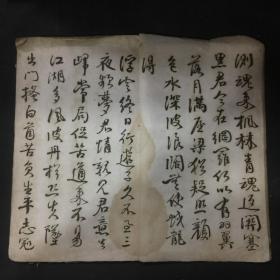 測魂来楓林青魂返關塞
黑君今在網羅何以有羽翼
落月滿屋梁猶疑照顏
色水深波浪闊無使蛟龍
得
浮雲終日行遊子久不至三
夜頻夢君情親見君意告
歸常局促苦道来不易
江湖多風波舟楫恐失墜
出門搔白首若負生平志冠